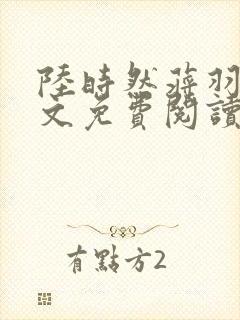 陸時然蔣羽
文免費閱讀
有點方2